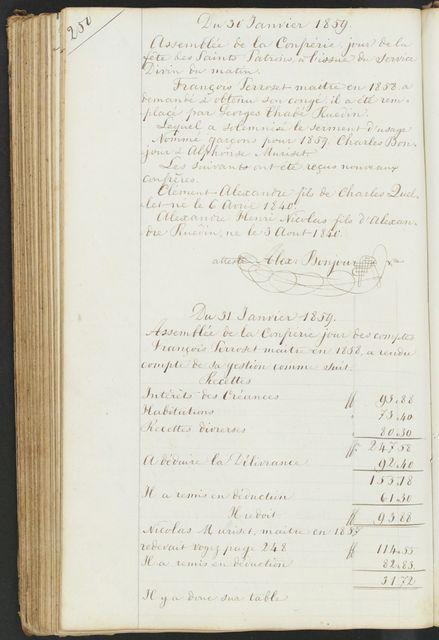 250
Du 30 Janvier 1859
Assemblée de la Confrérie, jour de la
fête des Saints Patrons, à l'issue du Service
Divin du matin.
François Perroset maitre en 1858 a
demandé & obtenu son congé, il a été rem-
placé par Georges Ruedin.
Lequel a solemnisé le serment d'usage
Nommé garçons pour 1859. Charles Bon-
jour & Alphonse Muriset.
Les suivants ont été reçus nouveaux
confrères.
Clément-Alexandre fils de Charles Quel-
let né le 6 Avril 1840.
Alexandre Henri Nicolas fils d'Alexan-
dre Ruedin, né le 3 Aout 1840.
atteste Alex. Bonjour
Du 31 Janvier 1859.
Assemblée de la Confrérie jour des comptes
François Perroset maitre en 1858, a rendu
compte de sa gestion comme suit.
Recettes
Intérêts des Créances ff 93.88
Habitations " 73.40
Recettes diverses " 80.30
ff 247.58
A déduire la Délivrance 92.40
155.18
Il a remis en déduction 61.30
Il redoit ff 93.88
Nicolas Muriset, maitre en 1857
redevait voyez page 248 ff 114.55
Il a remis en déduction 82.83
31.72
Il y a donc sur table